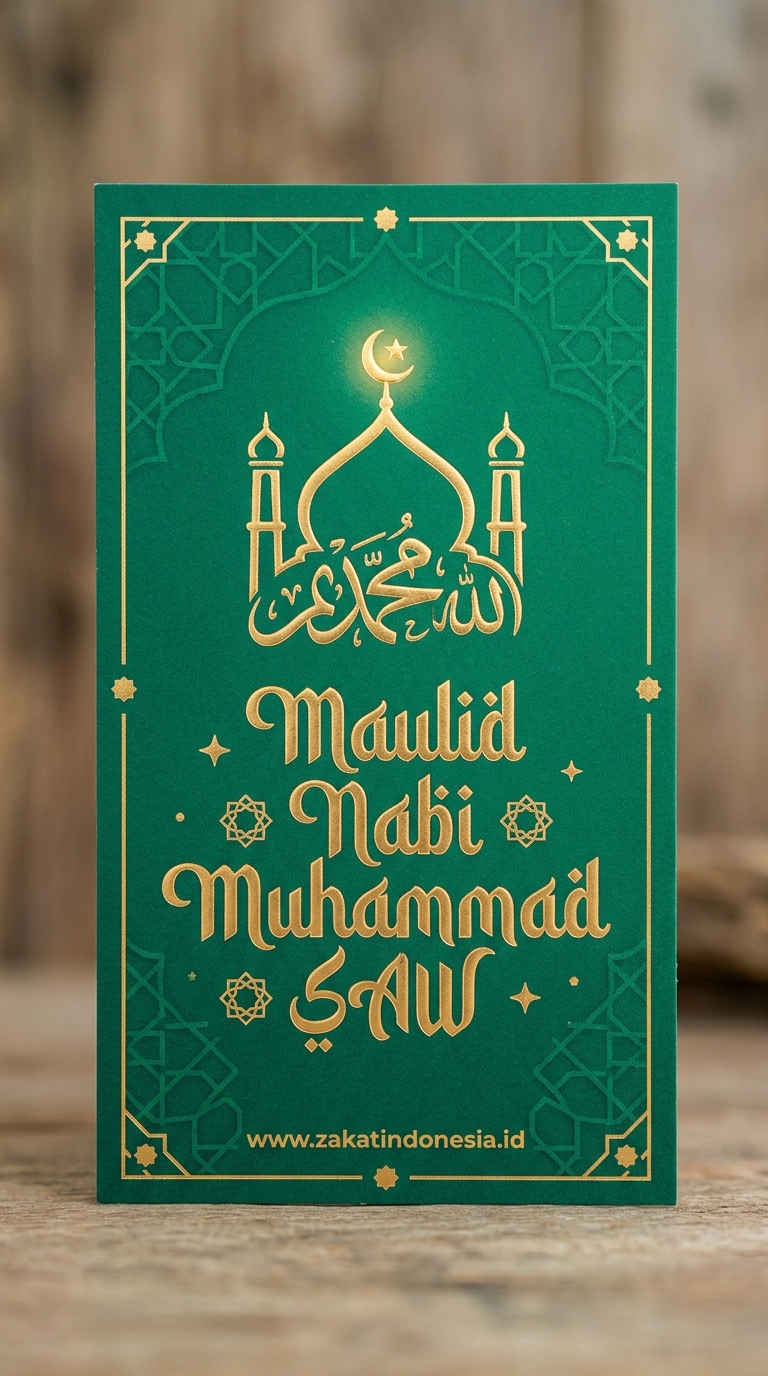 محمد الله
Maulid
Nabi
Muhammad
SAW
www.zakatindonesia.id